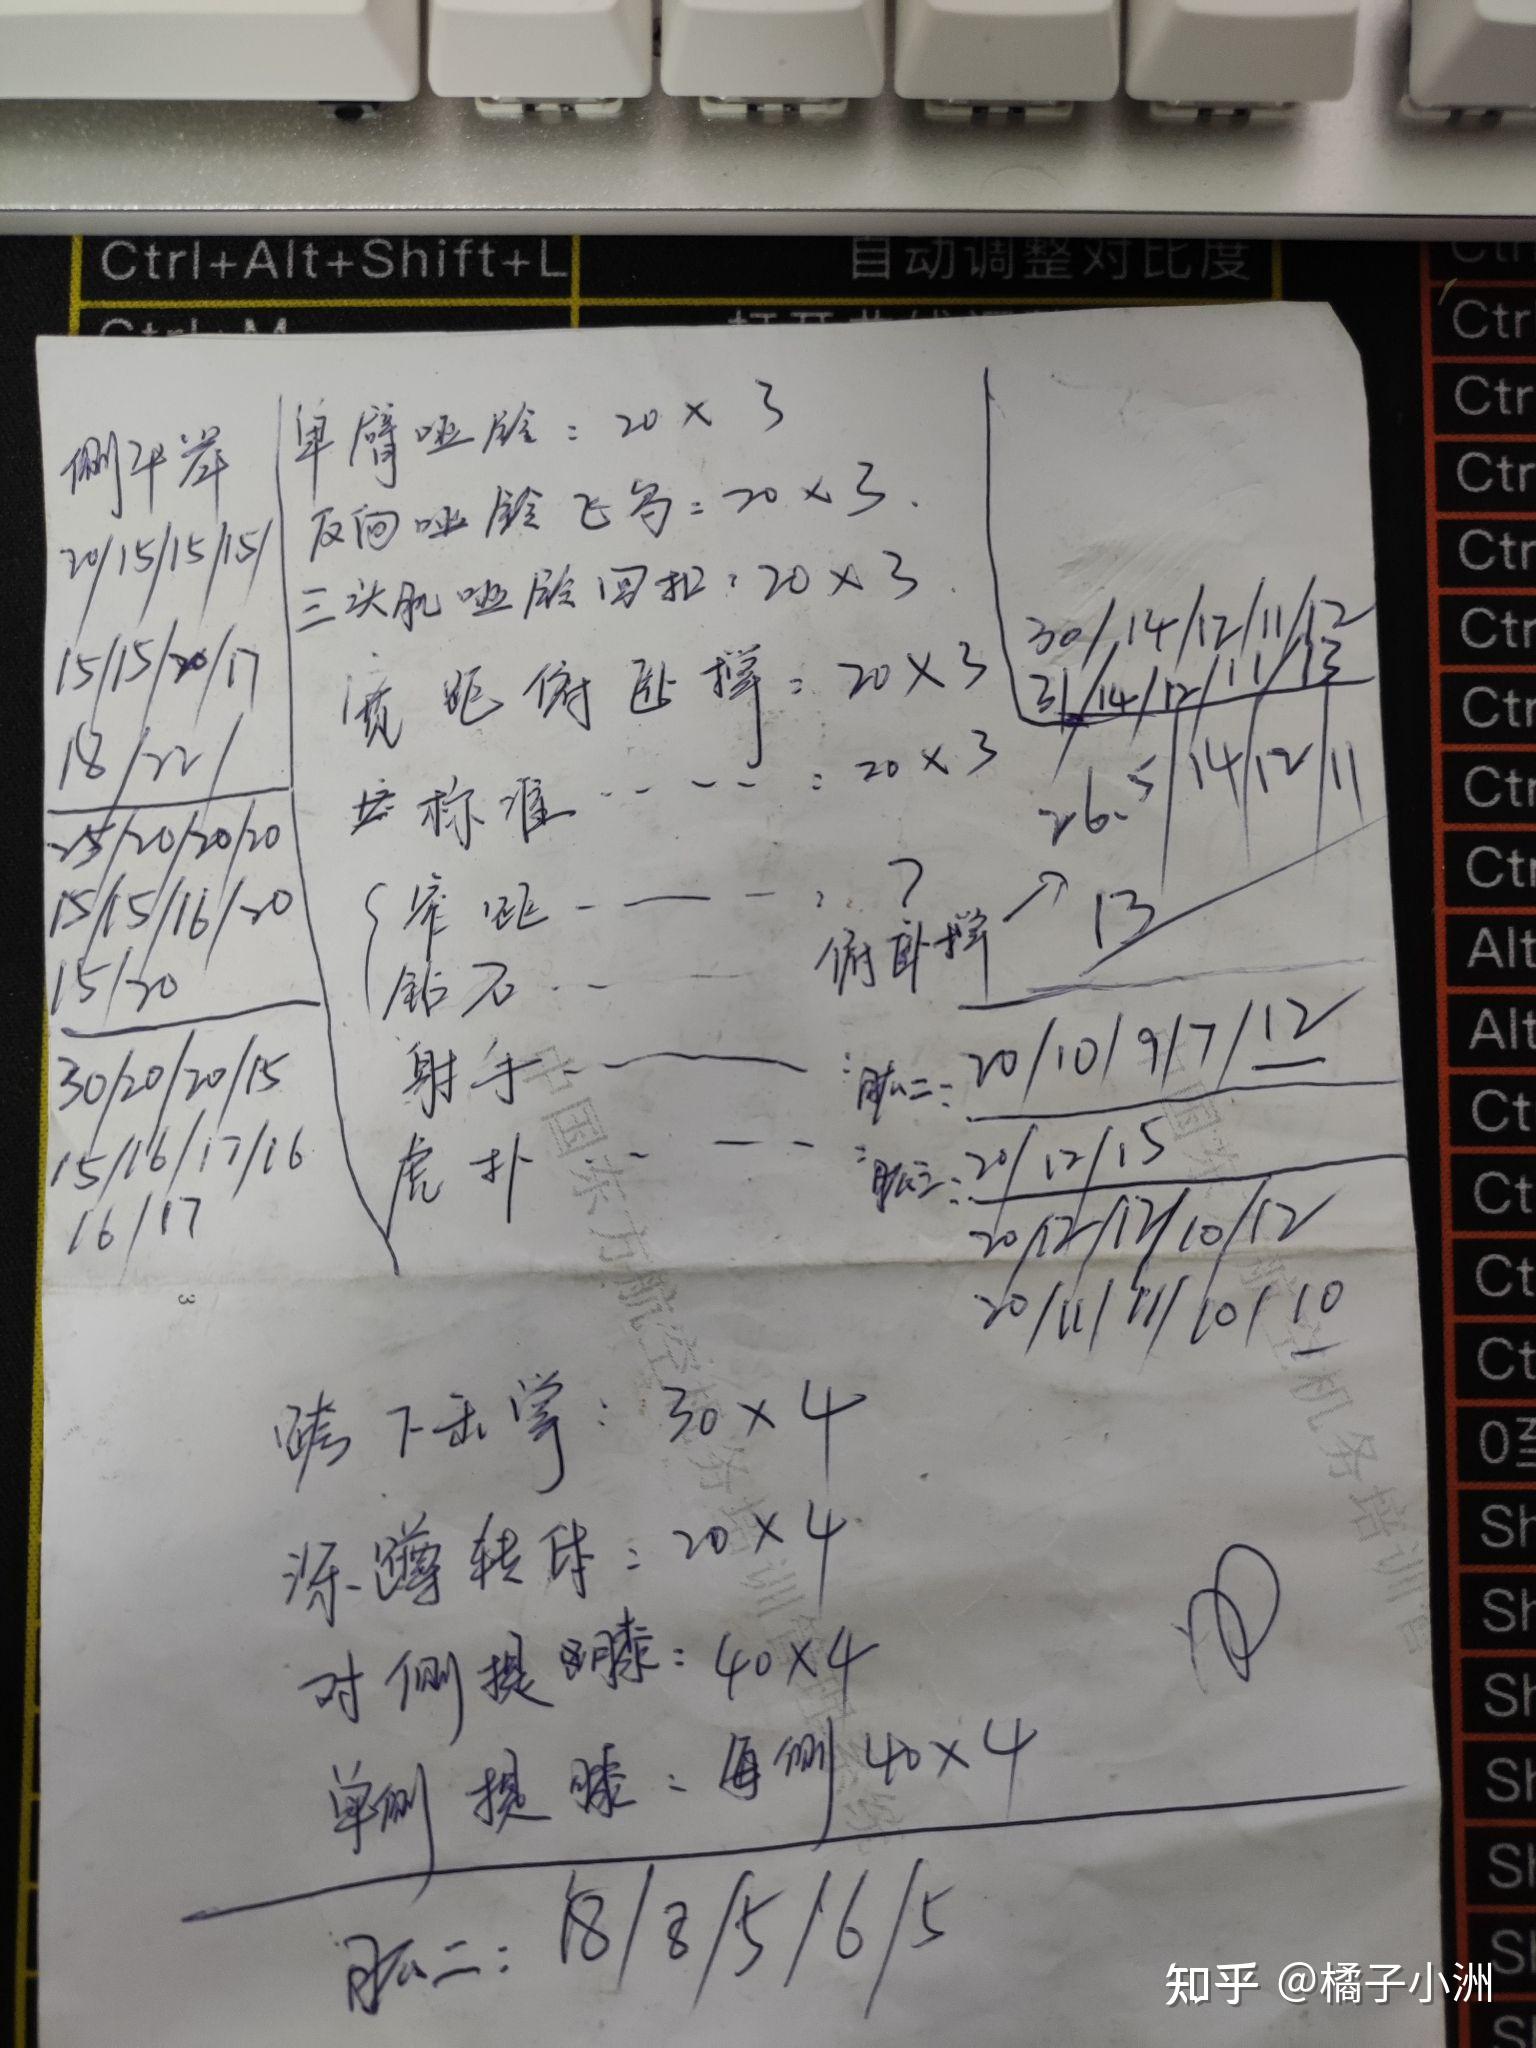 Ctrl+Alt+Shift+L 自动调整对比度
侧平举
20/15/15/15/
15/15/20/17
18/22/
25/20/20/20
15/15/16/20
15/20
30/20/20/15
15/16/17/16
16/17
单臂哑铃：20×3
反向哑铃飞鸟：20×3.
三头肌哑铃回扣：20×3.
宽距俯卧撑：20×3
标准----：20×3
窄距----：?
钻石
射手
虎扑
30/14/12/11/12
31/14/12/11/13
26.5/14/12/11
13
俯卧撑
肱二：20/10/9/7/12
肱三：20/12/15
20/12/12/10/12
20/11/11/10/10
3
跨下击掌：30×4
深蹲转体：20×4
对侧提膝：40×4
单侧提膝：每侧40×4
肱二：18/8/5/6/5
中国东方航空机务培训管
知乎 @橘子小洲
Ctr
Ctr
Ctr
Ctr
Ctr
Ctr
Ctr
Ctr
Alt
Alt
Ct
Ct
Ct
Ct
0至
Sh
Sh
Sh
Sh
Sh
Sh